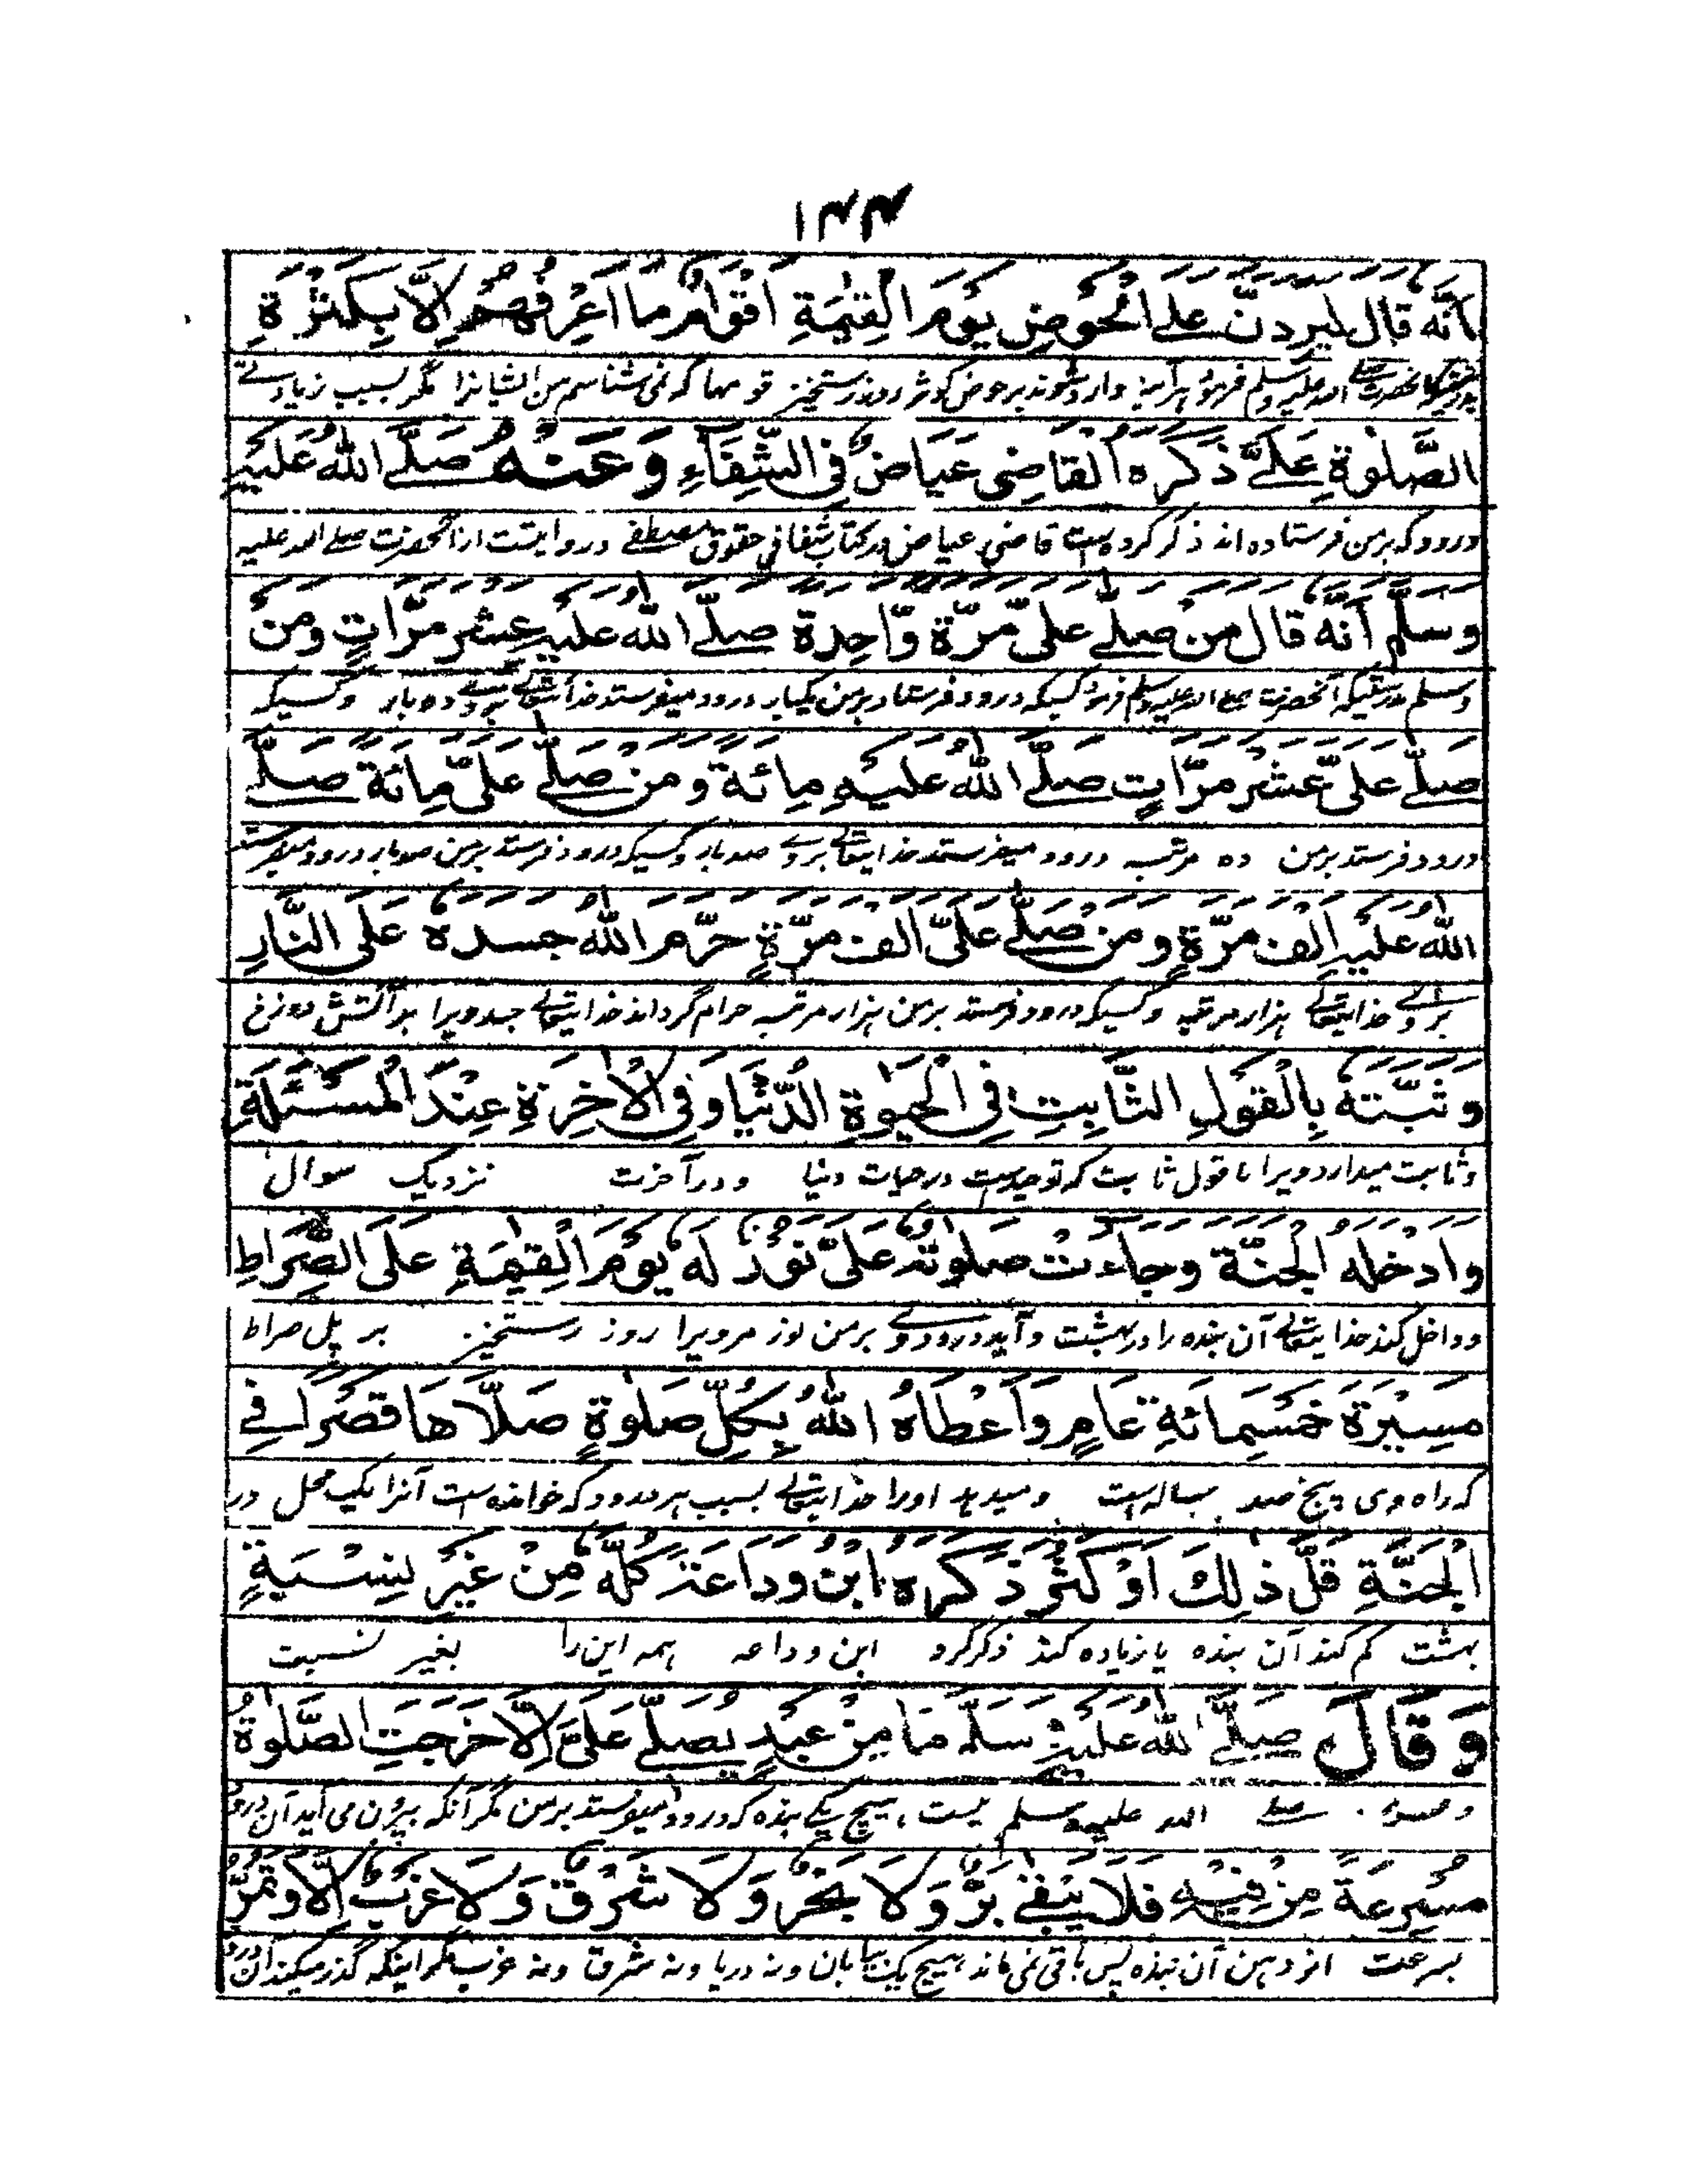 ۱۴۴
انّه قال ليردنّ على الحوض يَوْمَ الْقِيٰمَةِ اَقْوَامٌ ما اَعْرِفُهُمْ اِلَّا بِكَثْرَةِ
وسلم فرمود هرآینه وارد شوند بر حوض کوثر روز رستخیز قومها که نمی شناسم من ایشانرا مگر بسبب زیادتی
الصَّلٰوةِ عَلَیَّ ذَكَرَهُ القاضِی عَیَاضٌ فِی الشِّفَآءِ وَعَنْهُ صَلَّے اللّٰهُ عَلَيْهِ
درود که برمن فرستاده اند ذکر کرده است قاضی عیاض در کتاب شفا فی حقوق مصطفے و روایتست از آنحضرت صلے الله علیه
وَسَلَّمَ اَنَّهُ قَالَ مَنْ صَلّٰے عَلَیَّ مَرَّةً وَّاحِدَةً صَلَّے اللّٰهُ عَلَيْهِ عَشْرَ مَرَّاتٍ وَمَنْ
وسلم بدرستیکه آنحضرت صلے الله علیه وسلم فرمود کسیکه درود فرستاد برمن یکبار درود میفرستد خدایتعالے بروے ده بار وکسیکه
صَلّٰے عَلَیَّ عَشْرَ مَرَّاتٍ صَلَّے اللّٰهُ عَلَيْهِ مِائَةً وَمَنْ صَلّٰے عَلَیَّ مِائَةً صَلَّے
درود فرستد برمن ده مرتبه درود میفرستد خدایتعالے بروے صدبار وکسیکه درود فرستد برمن صدبار درود میفرستد
اللّٰهُ عَلَيْهِ اَلْفَ مَرَّةٍ وَمَنْ صَلّٰے عَلَیَّ اَلْفَ مَرَّةٍ حَرَّمَ اللّٰهُ جَسَدَهُ عَلَی النَّارِ
بروے خدایتعالے هزار مرتبه وکسیکه درود فرستد برمن هزار مرتبه حرام گرداند خدایتعالے جسد ویرا بر آتش دوزخ
وَثَبَّتَهُ بِالْقَوْلِ الثَّابِتِ فِی الْحَيٰوةِ الدُّنْيَا وَفِی الْاٰخِرَةِ عِنْدَ الْمَسْئَلَةِ
وثابت میدارد ویرا با قول ثابت که توحید است در حیات دنیا ودر آخرت نزدیک سوال
وَاَدْخَلَهُ الْجَنَّةَ وَجَاءَتْ صَلٰوتُهُ عَلَیَّ نُوْرٌ لَهُ يَوْمَ الْقِيٰمَةِ عَلَی الصِّرَاطِ
و داخل کند خدایتعالے آن بنده را در بهشت و آید درود وے برمن نور مر ویرا روز رستخیز بر پل صراط
مَسِيْرَةَ خَمْسِمِائَةِ عَامٍ وَاَعْطَاهُ اللّٰهُ بِكُلِّ صَلٰوةٍ صَلَّاهَا قَصْرًا فِے
که راه وی پنج صد ساله است و میدهد اورا خدایتعالے بسبب هر درود که خوانده است آنرا یک محل در
الْجَنَّةِ قَلَّ ذٰلِكَ اَوْ كَثُرَ ذَكَرَهُ ابْنُ وَدَاعَةَ كُلَّهُ مِنْ غَيْرِ نِسْبَةٍ
بهشت کم کند آن بنده یا زیاده کند ذکر کرد ابن وداعه همه این را بغیر نسبت
وَقَالَ صَلَّے اللّٰهُ عَلَيْهِ وَسَلَّمَ مَا مِنْ عَبْدٍ يُصَلِّے عَلَیَّ اِلَّا خَرَجَتِ الصَّلٰوةُ
صلے الله علیه وسلم نیست هیچ یکے بنده که درود میفرستد برمن مگر آنکه بیرون می آید آن درود
مُسْرِعَةً مِنْ فِيْهِ فَلَا يَبْقٰے بَرٌّ وَلَا بَحْرٌ وَلَا شَرْقٌ وَلَا غَرْبٌ اِلَّا وَتَمُرُّ
بسرعت از دهن آن بنده پس باقی نمی ماند هیچ یک بیابان ونه دریا ونه شرق ونه غرب مگر اینکه گذر میکند آن درود